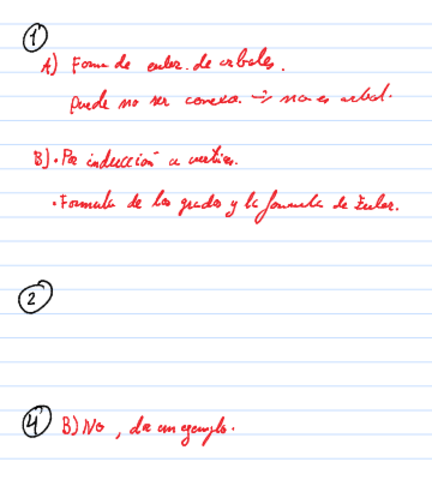 1
A) Forma de euler de arboles.
Puede no ser conexo. => no es arbol.
B) • Por inducción a vertices.
• Formula de los grados y la formula de Euler.
2
4 B) No, da un ejemplo.